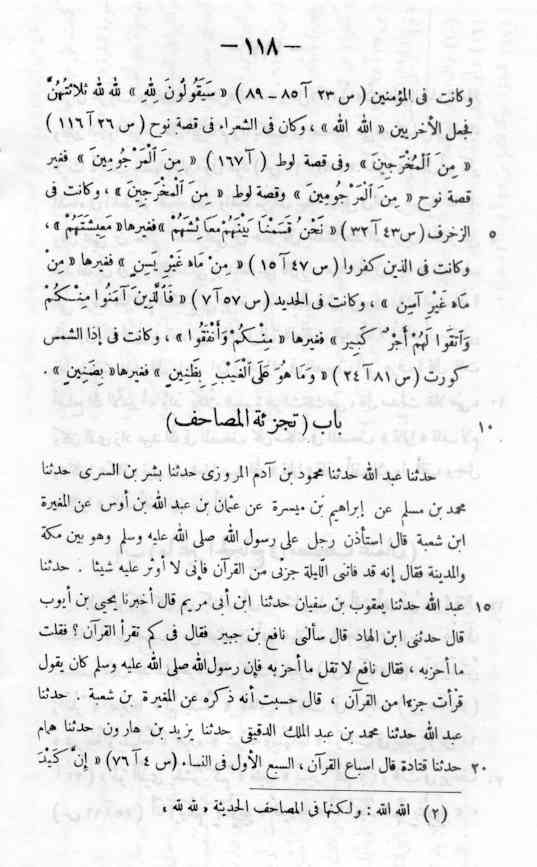 — ١١٨ —
وكانت فى المؤمنين (س ٢٣ آ ٨٥ — ٨٩) « سَيَقُولُونَ لِلّٰهِ » لله لله ثلاثتهُنَّ
فجعل الأخريين « الله الله » ، وكان فى الشعراء فى قصة نوح (س ٢٦ آ ١١٦)
« مِنَ ٱلْمُخْرَجِينَ » وفى قصة لوط (آ ١٦٧) « مِنَ ٱلْمَرْجُومِينَ » فغير
قصة نوح « مِنَ ٱلْمَرْجُومِينَ » وقصة لوط « مِنَ ٱلْمُخْرَجِينَ » ، وكانت فى
الزخرف (س ٤٣ آ ٣٢) « نَحْنُ قَسَمْنَا بَيْنَهُمْ مَعَائِشَهُمْ » فغيرها « مَعِيشَتَهُمْ » ، ٥
وكانت فى الذين كفروا (س ٤٧ آ ١٥) « مِنْ مَاء غَيْرِ يَسِنٍ » فغيرها « مِنْ
مَاء غَيْرِ آسِنٍ » ، وكانت فى الحديد (س ٥٧ آ ٧) « فَٱلَّذِينَ آمَنُوا مِنْكُمْ
وَٱتَّقَوا لَهُمْ أَجْرٌ كَبِير » فغيرها « مِنْكُمْ وَأَنْفَقُوا » ، وكانت فى إذا الشمس
كورت (س ٨١ آ ٢٤) « وَمَا هُوَ عَلَى ٱلْغَيْبِ بِظَنِينٍ » فغيرها « بِضَنِينٍ » .
باب (تجزئة المصاحف) ١٠
حدثنا عبد الله حدثنا محمود بن آدم المروزى حدثنا بشر بن السرى حدثنا
محمد بن مسلم عن إبراهيم بن ميسرة عن عثمان بن عبد الله بن أوس عن المغيرة
ابن شعبة قال استأذن رجل على رسول الله صلى الله عليه وسلم وهو بين مكة
والمدينة فقال إنه قد فاتنى الليلة جزئى من القرآن فإنى لا أوثر عليه شيئا . حدثنا
عبد الله حدثنا يعقوب بن سفيان حدثنا ابن أبى مريم قال أخبرنا يحيى بن أيوب ١٥
قال حدثنى ابن الهاد قال سألنى نافع بن جبير فقال فى كم تقرأ القرآن ؟ فقلت
ما أحزبه ، فقال نافع لا تقل ما أحزبه فإن رسول الله صلى الله عليه وسلم كان يقول
قرأت جزءا من القرآن ، قال حسبت أنه ذكره عن المغيرة بن شعبة . حدثنا
عبد الله حدثنا محمد بن عبد الملك الدقيقى حدثنا يزيد بن هارون حدثنا همام
حدثنا قتادة قال اسباع القرآن ، السبع الأول فى النساء (س ٤ آ ٧٦) « إِنَّ كَيْدَ ٢٠
(٢) الله الله : ولكنها فى المصاحف الحديثة « لله لله »